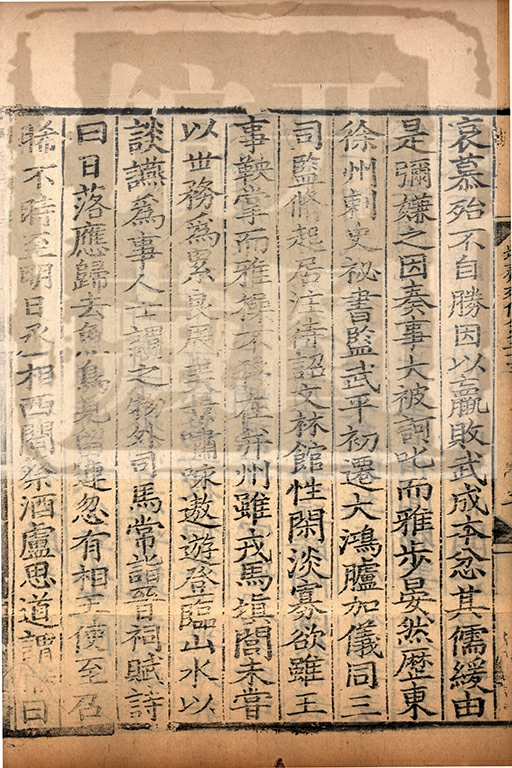 哀慕殆不自勝因以羸敗武成本忿其儒緩由
是彌嫌之因奏事大被訶叱而雅步晏然歷東
徐州刺史祕書監武平初遷大鴻臚加儀同三
司監脩起居注待詔文林館性閑淡寡欲雖王
事鞅掌而雅操不移在并州雖戎馬填閭未嘗
以世務爲累良辰美景嘯詠遨遊登臨山水以
談讌爲事人士謂之物外司馬常詣晉祠賦詩
曰日落應歸去魚鳥見留連忽有相王使至召
晞不時至明日丞相西閤祭酒盧思道謂晞曰